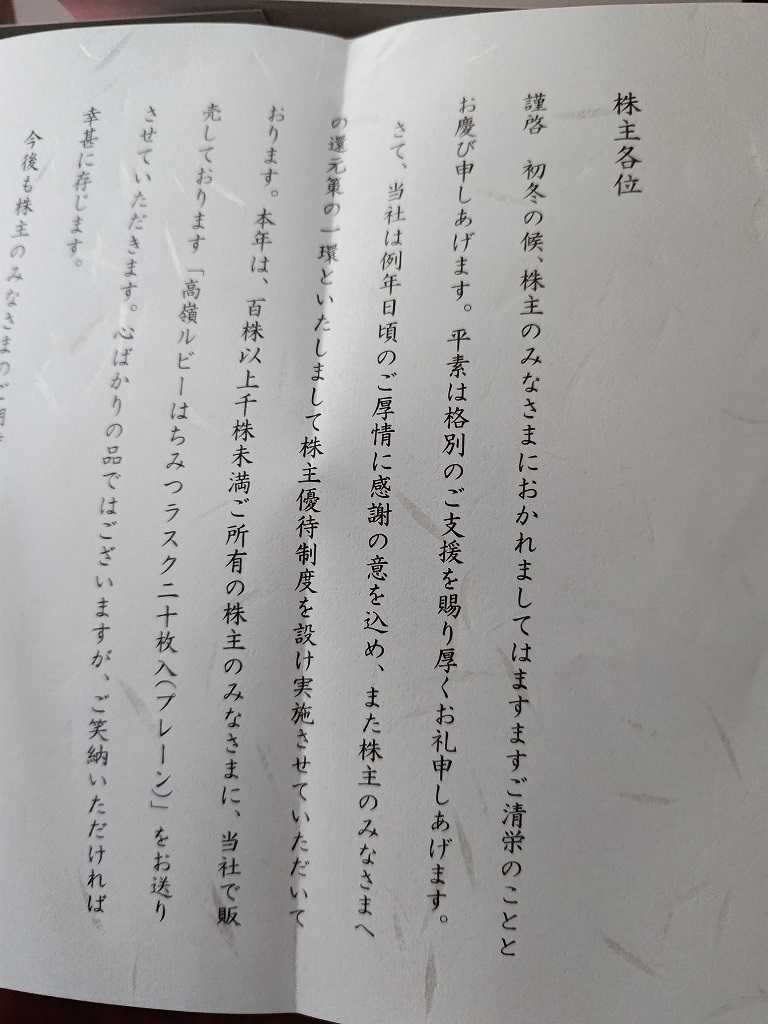 株主各位
謹啓　初冬の候、株主のみなさまにおかれましてはますますご清栄のことと
お慶び申しあげます。平素は格別のご支援を賜り厚くお礼申しあげます。
さて、当社は例年日頃のご厚情に感謝の意を込め、また株主のみなさまへ
の還元策の一環といたしまして株主優待制度を設け実施させていただいて
おります。本年は、百株以上千株未満ご所有の株主のみなさまに、当社で販
売しております「高嶺ルビーはちみつラスク二十枚入（プレーン）」をお送り
させていただきます。心ばかりの品ではございますが、ご笑納いただければ
幸甚に存じます。
今後も株主のみなさまのご